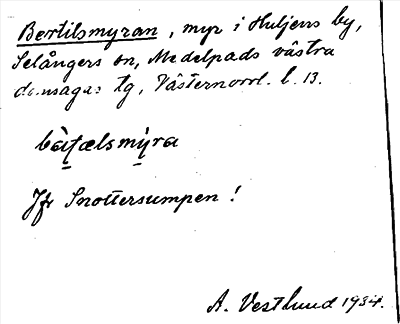 Bertilsmyran, myr i Huljens by,
Selångers sn, Medelpads västra
domsagas tg, Västernorrl. l. 13.
Jfr Snottersumpen!
A. Vestlund 1934.